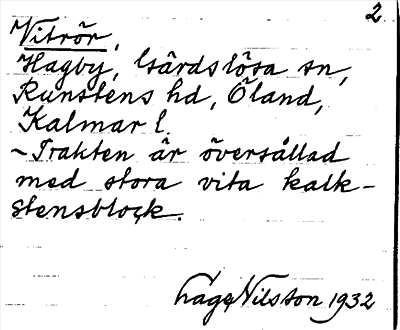 2
Vitrör,
Hagby, Gärdslösa sn,
Runstens hd, Öland,
Kalmar l.
~Trakten är översållad
med stora vita kalk-
stensblock.
Nilsson 1932